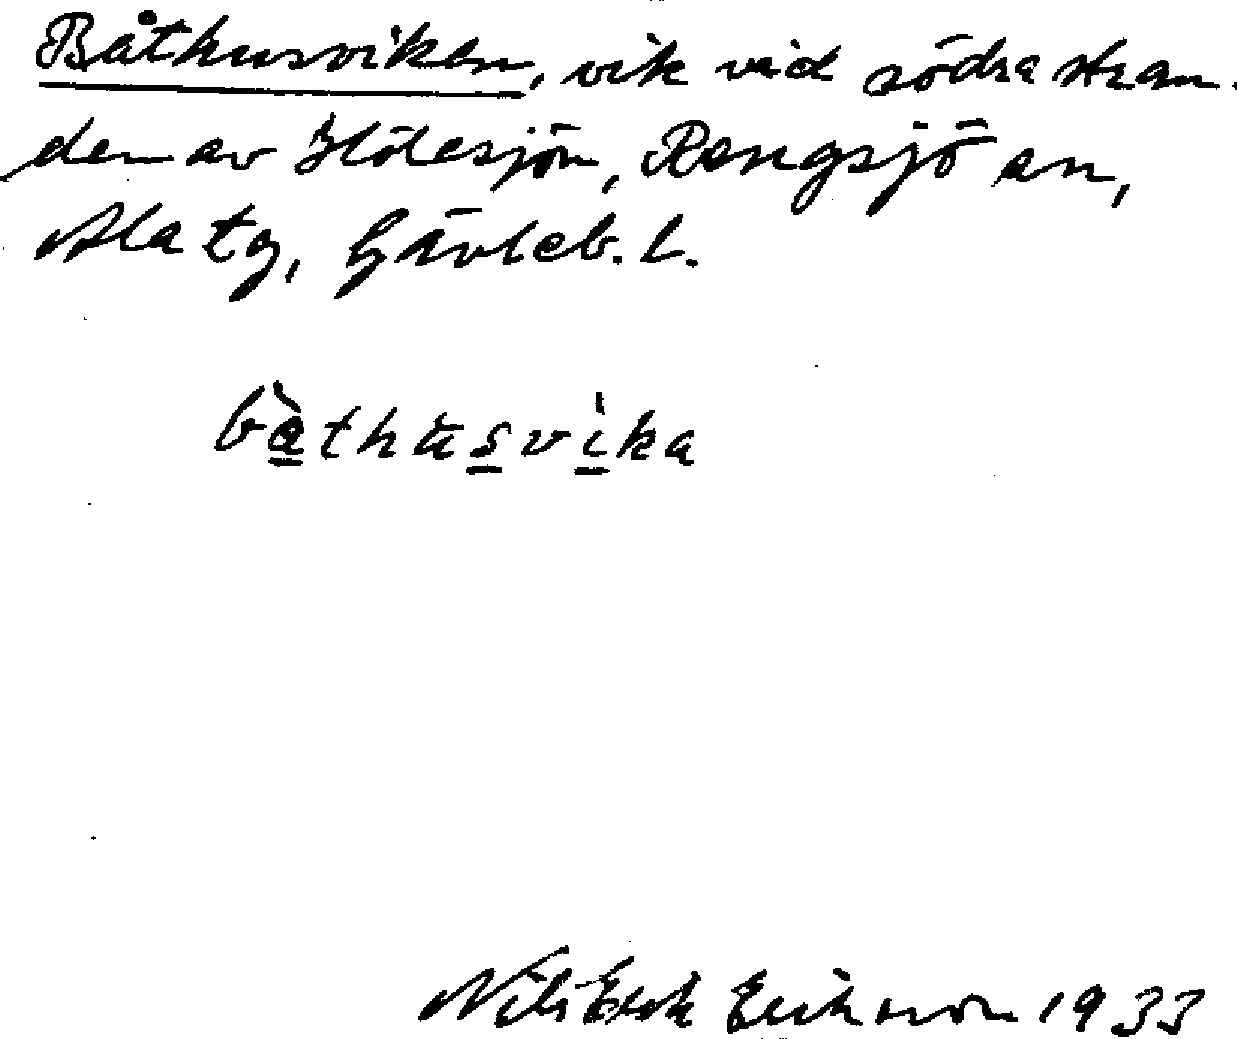 Båthusviken, vik vid södra stran-
den av Flötesjön, Rengsjö sn,
Ala tg, Gävleb. l.
båthusvika
Nils Erik Eriksson 1933